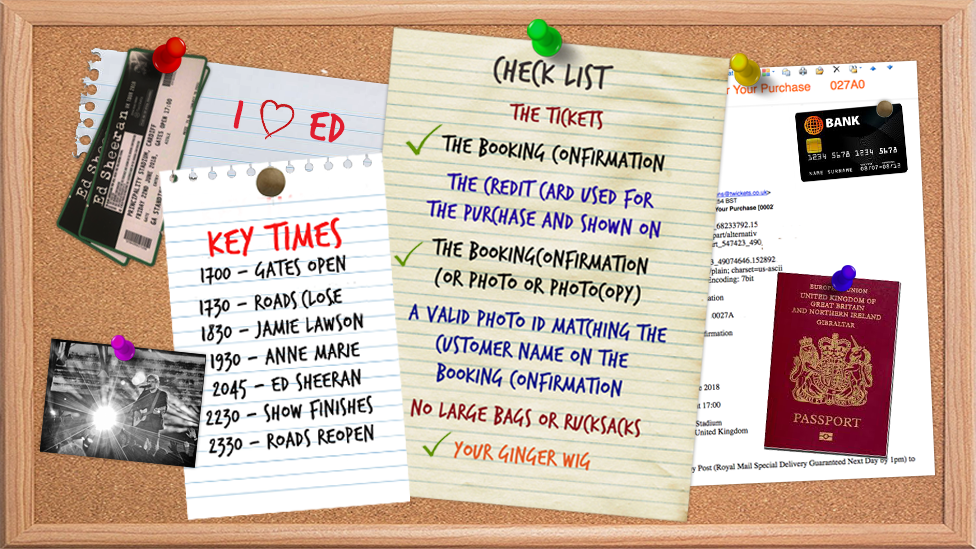 Ed Sheeran
PRINCIPALITY STADIUM, CARDIFF
FRIDAY 22ND JUNE 2018, GATES OPEN 17:00
GA STANDING
I ED
KEY TIMES
1700 - GATES OPEN
1730 - ROADS CLOSE
1830 - JAMIE LAWSON
1930 - ANNE MARIE
2045 - ED SHEERAN
2230 - SHOW FINISHES
2330 - ROADS REOPEN
CHECK LIST
THE TICKETS
THE BOOKING CONFIRMATION
THE CREDIT CARD USED FOR
THE PURCHASE AND SHOWN ON
THE BOOKINGCONFIRMATION
(OR PHOTO OR PHOTOCOPY)
A VALID PHOTO ID MATCHING THE
CUSTOMER NAME ON THE
BOOKING CONFIRMATION
NO LARGE BAGS OR RUCKSACKS
YOUR GINGER WIG
r Your Purchase 027A0
BANK
1234 5678 1234 5678
NAME SURNAME 08/07-08/13
ns@twickets.co.uk>
54 BST
Your Purchase [0002
_68233792.15
part/alternativ
rt_547423_490
3_49074646.152892
/plain; charset=us-ascii
Encoding: 7bit
ation
0027A
firmation
e 2018
t 17:00
Stadium
United Kingdom
y Post (Royal Mail Special Delivery Guaranteed Next Day by 1pm) to
EUROPEAN UNION
UNITED KINGDOM OF
GREAT BRITAIN
AND NORTHERN IRELAND
GIBRALTAR
PASSPORT